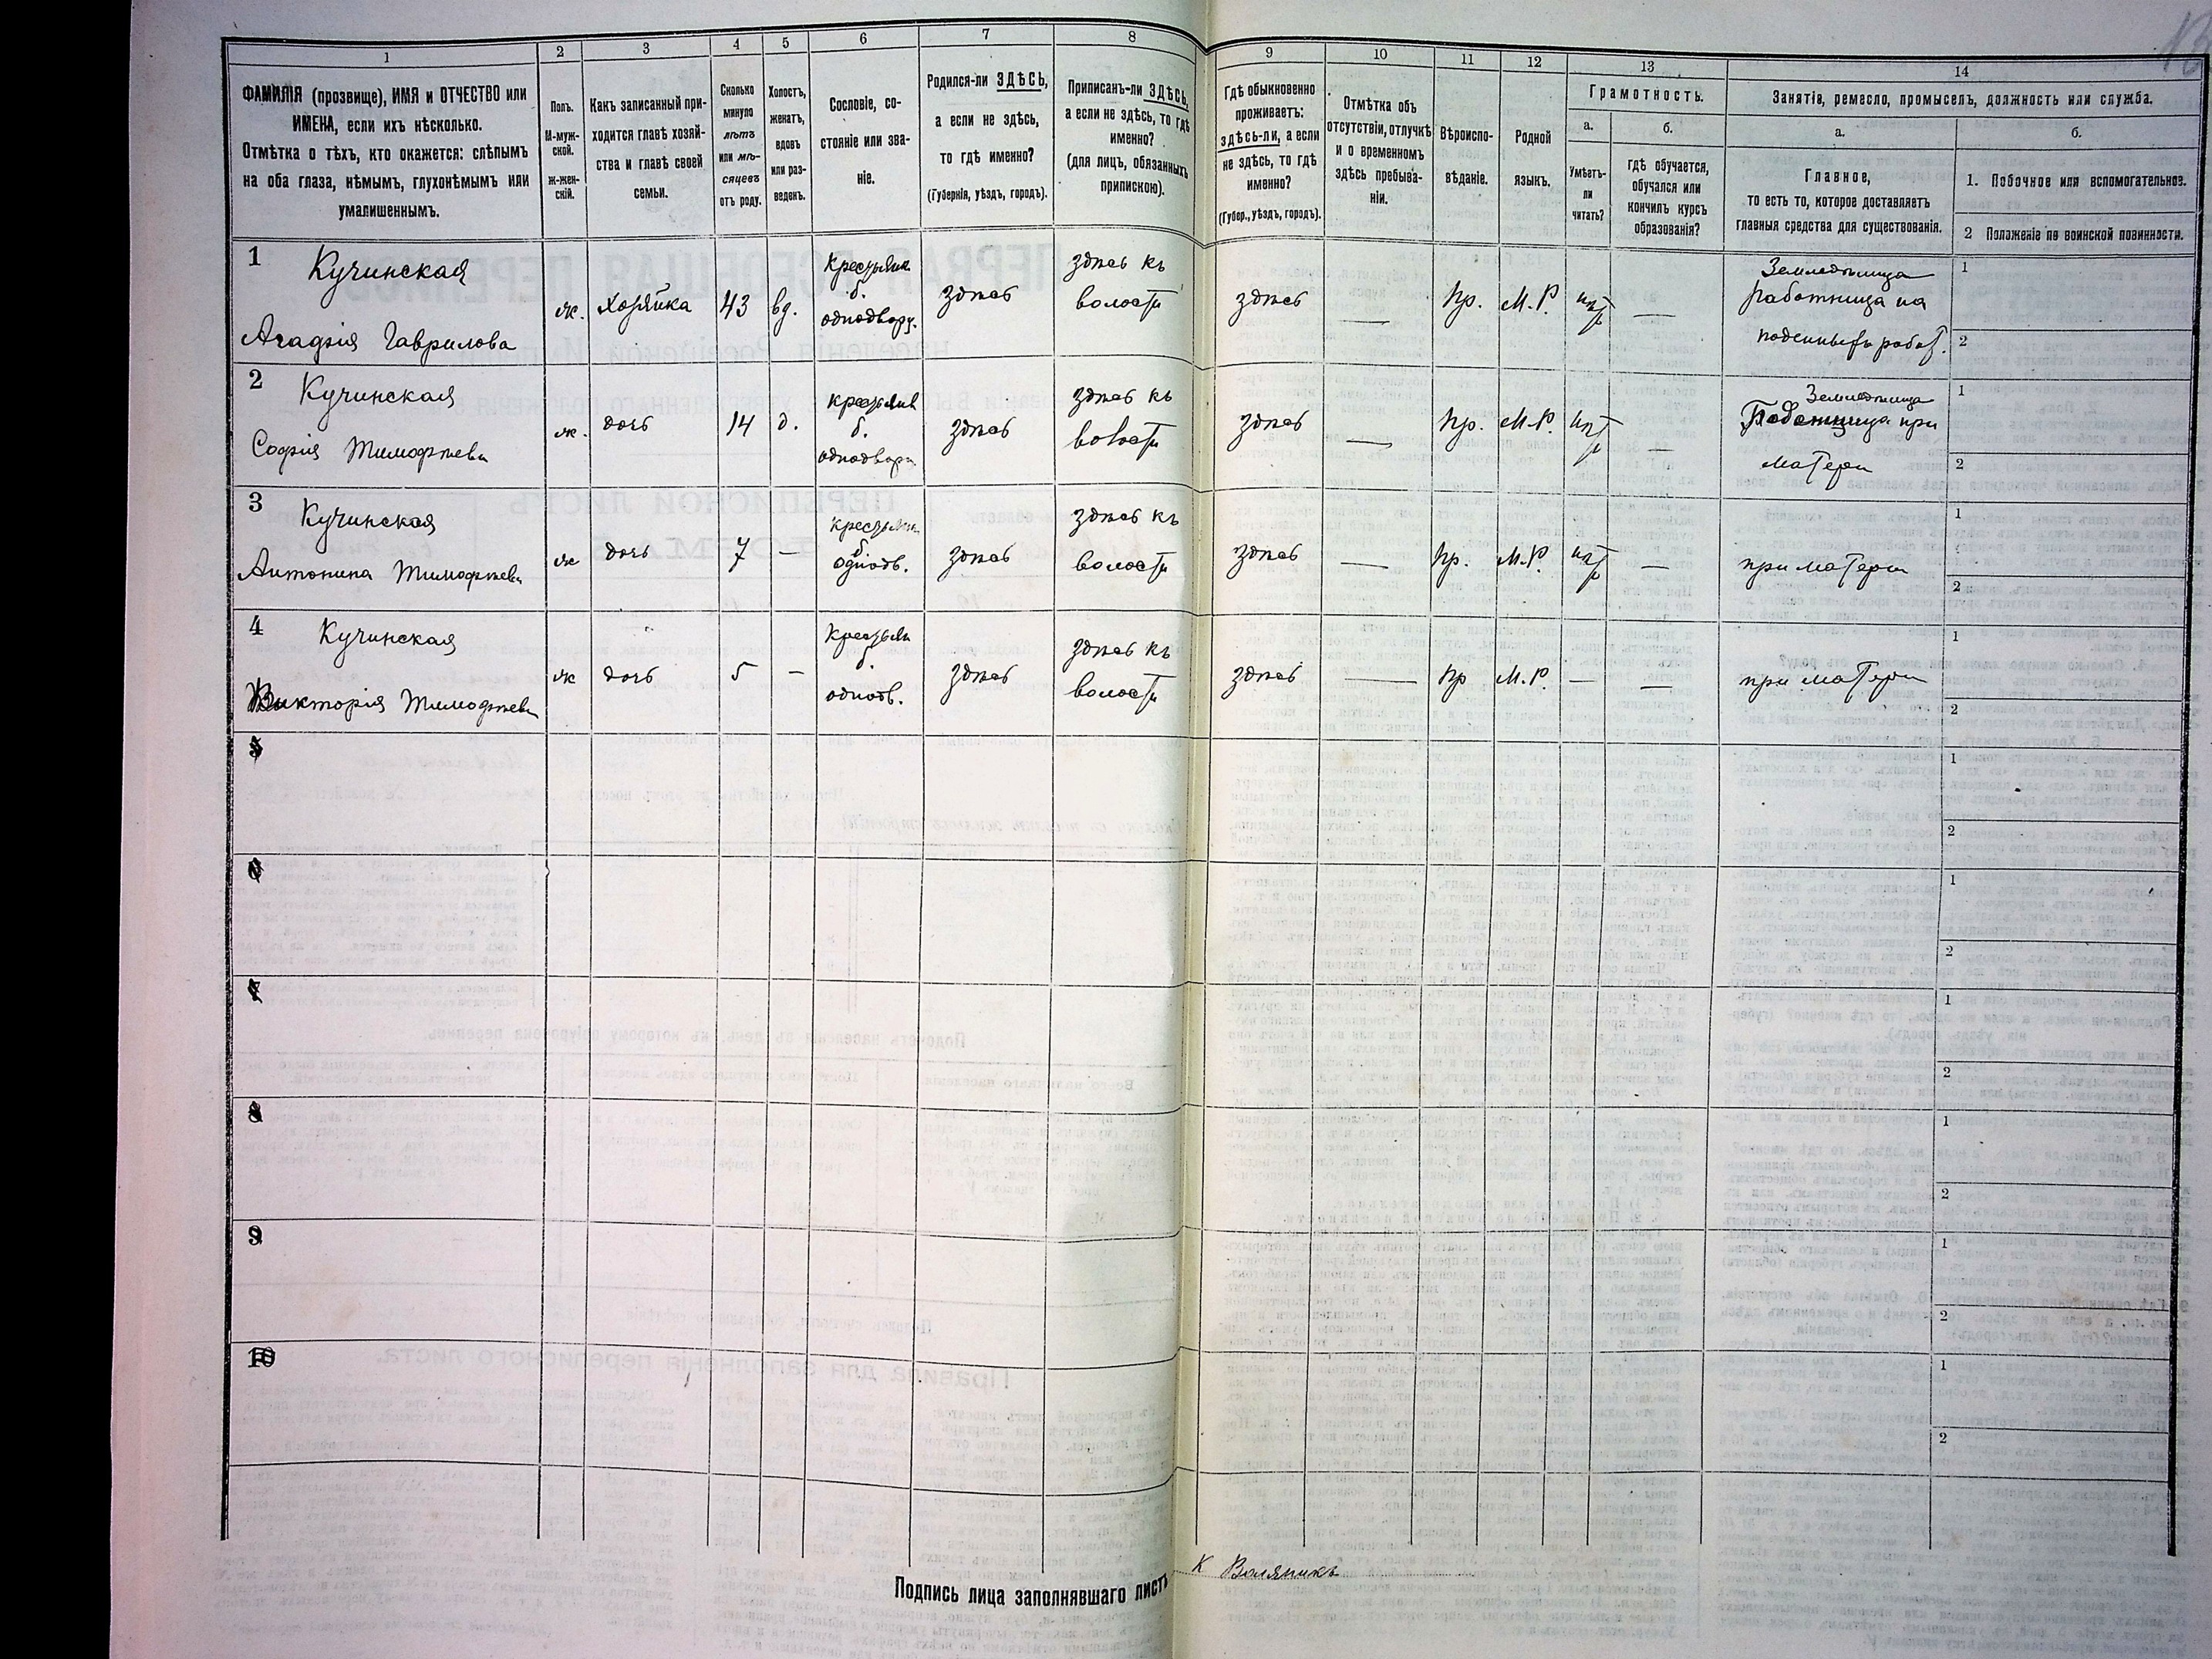 1 2 3 4 5 6 7 8 9 10 11 12 13 14
ФАМИЛІЯ (прозвище), ИМЯ и ОТЧЕСТВО или
ИМЕНА, если ихъ нѣсколько.
Отмѣтка о тѣхъ, кто окажется: слѣпымъ
на оба глаза, нѣмымъ, глухонѣмымъ или
умалишеннымъ.
Полъ.
М-муж-
ской.
ж-жен-
скій.
Какъ записанный при-
ходится главѣ хозяй-
ства и главѣ своей
семьи.
Сколько
минуло
лѣтъ
или мѣ-
сяцевъ
отъ роду.
Холостъ,
женатъ,
вдовъ
или раз-
веденъ.
Сословіе, со-
стояніе или зва-
ніе.
Родился-ли ЗДѢСЬ,
а если не здѣсь,
то гдѣ именно?
(Губернія, уѣздъ, городъ).
Приписанъ-ли ЗДѢСЬ,
а если не здѣсь, то гдѣ
именно?
(для лицъ, обязанныхъ
припискою).
Гдѣ обыкновенно
проживаетъ:
здѣсь-ли, а если
не здѣсь, то гдѣ
именно?
(Губер., уѣздъ, городъ).
Отмѣтка объ
отсутствіи, отлучкѣ
и о временномъ
здѣсь пребыва-
ніи.
Вѣроиспо-
вѣданіе.
Родной
языкъ.
Грамотность.
а.
Умѣетъ-
ли
читать?
б.
гдѣ обучается,
обучался или
кончилъ курсъ
образованія?
Занятіе, ремесло, промыселъ, должность или служба.
а.
Главное,
то есть то, которое доставляетъ
главныя средства для существованія.
б.
1. Побочное или вспомогательное.
2 Положеніе по воинской повинности.
1 Кучинская
Агафія Гаврилова
ж. Хозяйка 43 вд.
б.
однодворц.
здѣсь
здѣсь къ
волости
здѣсь — Пр. М.Р. нѣтъ —
Земледѣлица
работница на
поденныхъ работ.
1
2
2 Кучинская
Софія Тимофѣева
ж. дочь 14 д.
б.
здѣсь
здѣсь къ
волости
здѣсь — Пр. М.Р. нѣтъ —
Земледѣлица
Работница при
матери
1
2
3 Кучинская
Антонина Тимофѣева
ж дочь 7 —
б
однодв.
здѣсь
здѣсь къ
волости
здѣсь — Пр. М.Р. нѣтъ —
при матери
1
2
4 Кучинская
Викторія Тимофѣева
ж дочь 5 —
б.
однодв.
здѣсь
здѣсь къ
волости
здѣсь — Пр М.Р. — —
при матери
1
2
5
1
2
6
1
2
7
1
2
8
1
2
9
1
2
10
1
2
Подпись лица заполнявшаго листъ